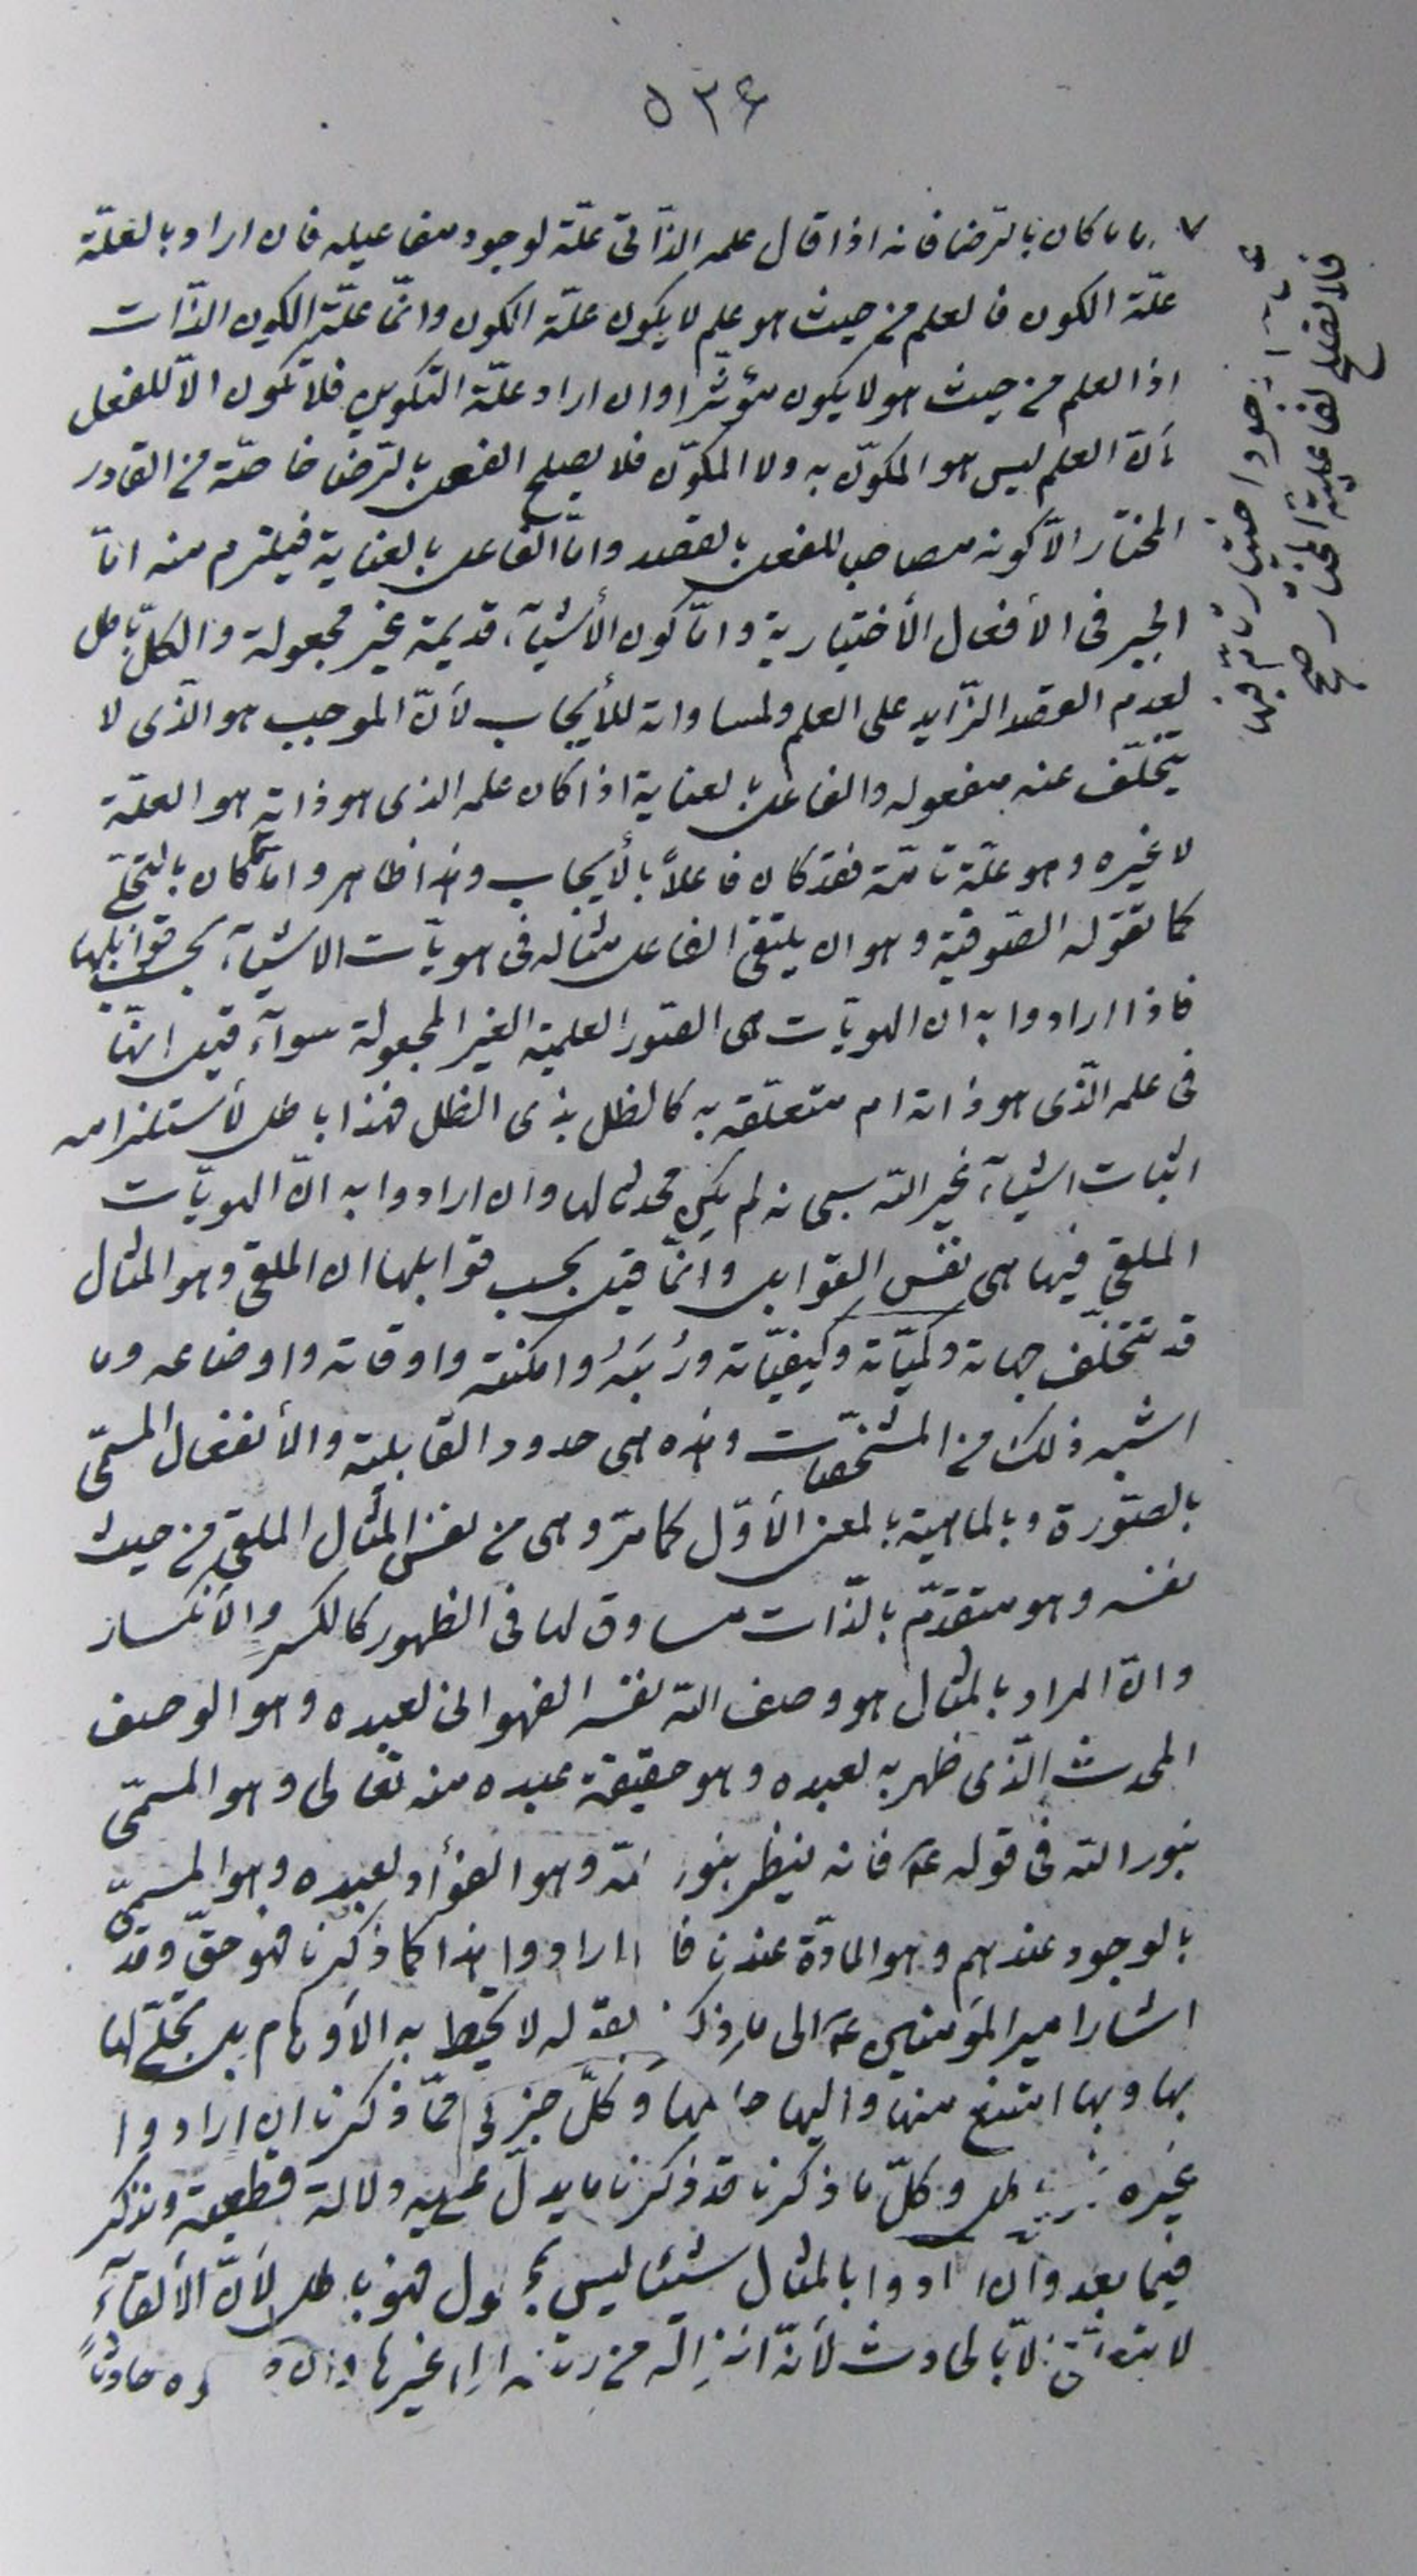 ٥٣۶
ما كان بالرّضا فانه اذا قال علمه الذّاتىّ علّة لوجود مفاعيله فان اراد بالعلّة
علّة الكون فالعلم من حيث هو علم لا يكون علّة الكون وانّما علّة الكون الذّات
اذ العلم من حيث هو لا يكون مؤثّرا وان اراد علّة التكوين فلا تكون الّا للفعل
لأنّ العلم ليس هو المكوّن به ولا المكوّن فلا يصلح الفعل بالرّضا خاصّة من القادر
المختار الّا كونه مصاحبا للفعل بالقصد وامّا الفاعل بالعناية فيلزم منه امّا
الجبر فى الأفعال الأختيارية وامّا كون الأشيآء قديمة غير مجعولة والكلّ باطل
لعدم القصد الزّايد على العلم ولمساواته للأيجاب لأنّ الموجب هو الّذى لا
يتخلّف عنه مفعوله والفاعل بالعناية اذا كان علمه الذى هو ذاته هو العلّة
لا غيره وهو علّة تامّة فقد كان فاعلاً بالأيجاب وهذا ظاهر وامّا كان بالتجلّى
كما تقوله الصّوفيّة وهو ان يلقى الفاعل مثاله فى هويّات الاشيآء بحسب قوابلها
فاذا ارادوا به ان الهويّات هى الصّور العلميّة الغير المجعولة سوآء قيل انّها
فى علمه الّذى هو ذاته ام متعلّقة به كالظل بذى الظل فهذا باطل لأستلزامه
اثبات اشيآء غير اللّه سبحانه لم يكن محدثا لها وان ارادوا به انّ الهويّات
الملقى فيها هى نفس القوابل وانّما قيل بحسب قوابلها ان الملقى وهو المثال
قد تتخلّف جهاته وكميّاته وكيفيّاته ورُتَبَهُ وامكنته واوقاته واوضاعه وما
اشبه ذلك من المشخّصات وهذه هى حدود القابلية والأنفعال المسمّى
بالصّورة وبالماهية بالمعنى الأوّل كما مرّ وهى من نفس المثال الملقى من حيث
نفسه وهو متقدّم بالذّات مساوق لها فى الظهور كالكسرِ والأنكسار
وانّ المراد بالمثال هو وصف اللّه نفسه الفهوانى لعبده وهو الوصف
المحدث الّذى ظهر به لعبده وهو حقيقة عبده منه تعالى وهو المسمّى
بنور اللّه فى قوله ع فانه ينظر بنور اللّه وهو الفؤاد لعبده وهو المسمىّ
بالوجود عندهم وهو المادّة عندنا فاذا ارادوا هذا كما ذكرنا فهو حقّ وقد
اشار امير المؤمنين ع الى ما ذكر بقوله لا تحيط به الأوهام بل تجلّى لها
بها وبها امتنع منها واليها حاكمها وكلّ جزئى ممّا ذكرنا ان ارادوا
غيره باطل وكلّ ما ذكرنا قد ذكرنا ما يدلّ عليه دلالة قطعيّة ونذكر
فيما بعد وان ارادوا بالمثال شيئا ليس بمجعول فهو باطل لأنّ الألقآء
لا يتعلّق الّا بالحادث لأنّه انزاله من رتبته الى غيرها حادثاً
فلا تصلح لفاعليّة المختار صح